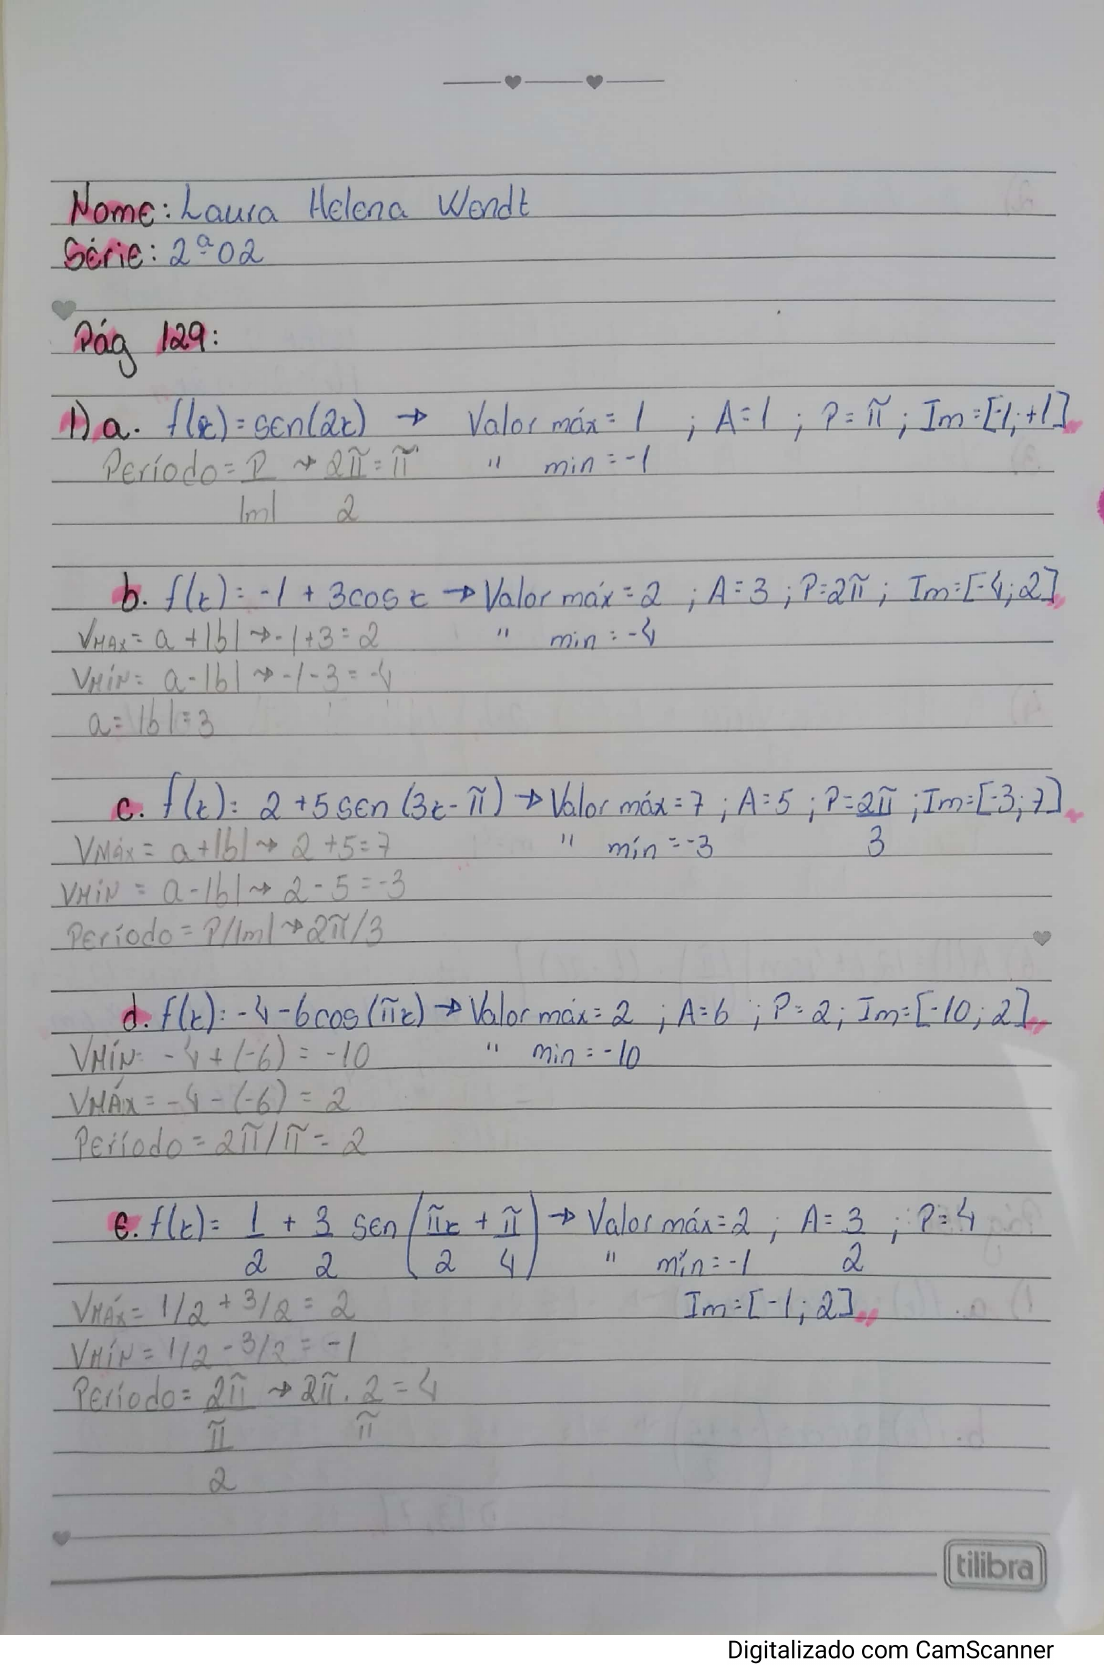 Nome: Laura Helena Wendt
Série: 2ª 02
Pág 129:
1) a. f(x) = sen(2x) → Valor máx = 1 ; A = 1 ; P = π ; Im = [-1; +1]
Período = P/|m| → 2π/2 = π " min = -1
b. f(x) = -1 + 3cos x → Valor máx = 2 ; A = 3 ; P = 2π ; Im = [-4; 2]
VMÁX = a + |b| → -1 + 3 = 2 " min = -4
VMÍN = a - |b| → -1 - 3 = -4
a = |b| = 3
c. f(x) = 2 + 5 sen (3x - π) → Valor máx = 7 ; A = 5 ; P = 2π/3 ; Im = [-3; 7]
VMÁX = a + |b| → 2 + 5 = 7 " mín = -3
VMÍN = a - |b| → 2 - 5 = -3
Período = P/|m| → 2π/3
d. f(x) = -4 - 6cos(πx) → Valor máx = 2 ; A = 6 ; P = 2 ; Im = [-10; 2]
VMÍN = -4 + (-6) = -10 " min = -10
VMÁX = -4 - (-6) = 2
Período = 2π/π = 2
e. f(x) = 1/2 + 3/2 sen (πx/2 + π/4) → Valor máx = 2 ; A = 3/2 ; P = 4
" mín = -1
VMÁX = 1/2 + 3/2 = 2 Im = [-1; 2]
VMÍN = 1/2 - 3/2 = -1
Período = 2π/(π/2) → 2π . 2/π = 4
tilibra
Digitalizado com CamScanner